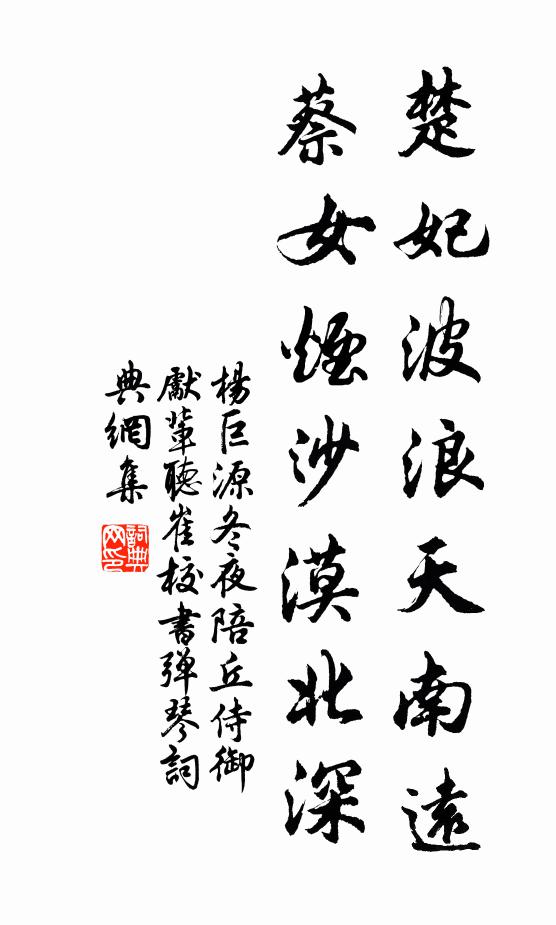 楚妃波浪天南遠
蔡女煙沙漠北深
楊巨源冬夜陪丘侍御
獻輩聽崔校書弹琴詞
典網集
詞典
网印